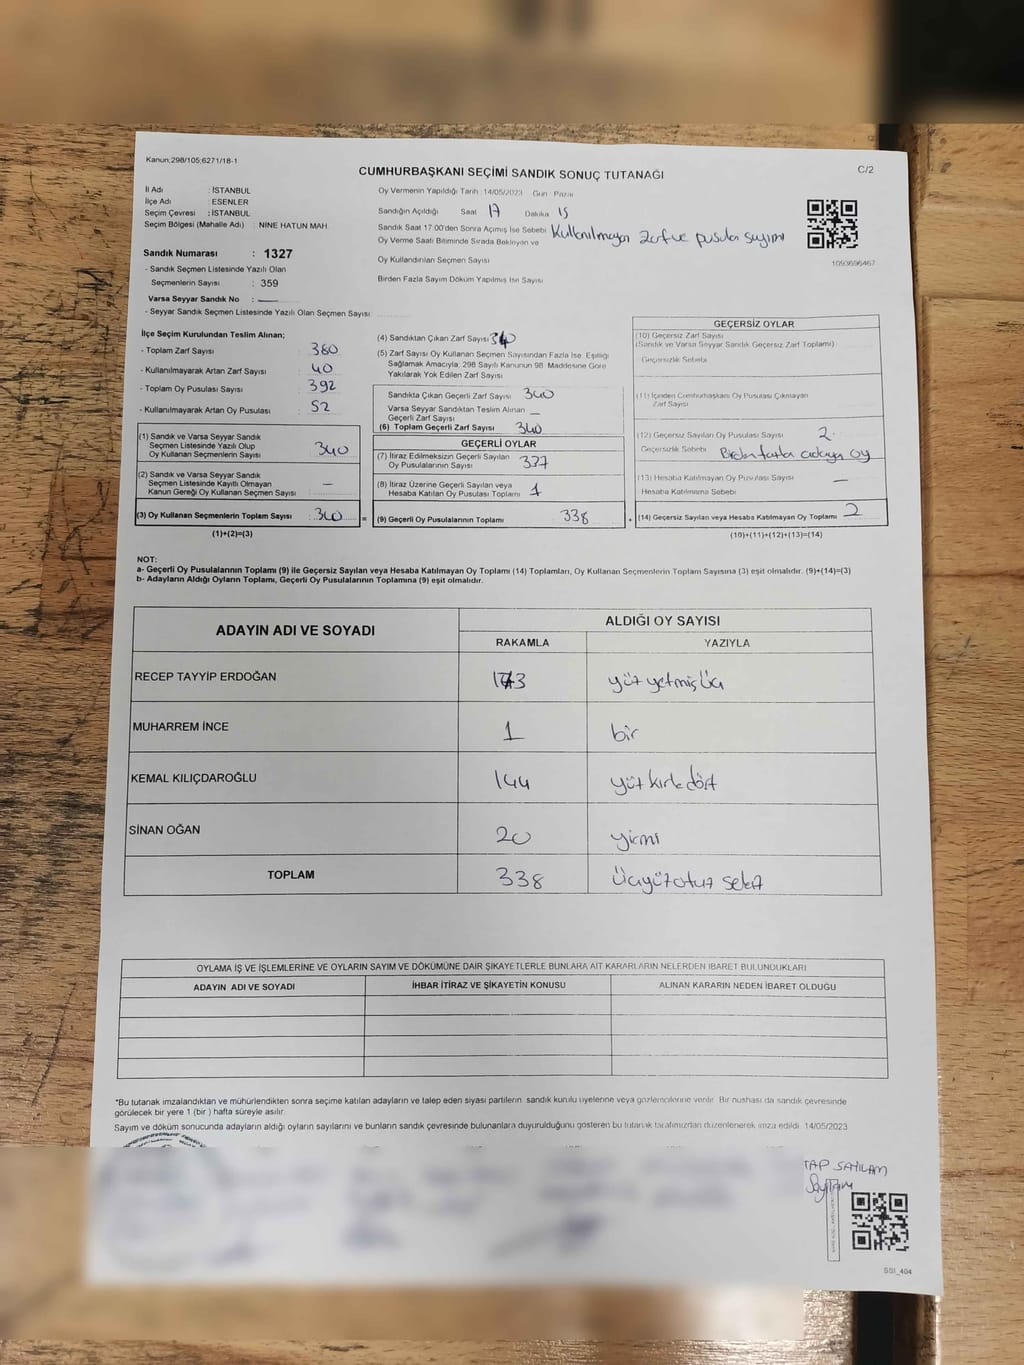 Kanun,298/105;6271/18-1
C/2
CUMHURBAŞKANI SEÇİMİ SANDIK SONUÇ TUTANAĞI
İl Adı : İSTANBUL
İlçe Adı : ESENLER
Seçim Çevresi : İSTANBUL
Seçim Bölgesi (Mahalle Adı) : NİNE HATUN MAH.
Sandık Numarası : 1327
- Sandık Seçmen Listesinde Yazılı Olan
Seçmenlerin Sayısı : 359
Varsa Seyyar Sandık No :
- Seyyar Sandık Seçmen Listesinde Yazılı Olan Seçmen Sayısı:
Oy Vermenin Yapıldığı Tarih :14/05/2023 Gün : Pazar
Sandığın Açıldığı Saat 17 Dakika 15
Sandık Saat 17:00'den Sonra Açmış İse Sebebi Kullanılmayan Zarf ve pusula sayımı
Oy Verme Saati Bitiminde Sırada Bekleyen ve
Oy Kullandırılan Seçmen Sayısı
Birden Fazla Sayım Döküm Yapılmış İse Sayısı
1093696467
İlçe Seçim Kurulundan Teslim Alınan;
- Toplam Zarf Sayısı 380
- Kullanılmayarak Artan Zarf Sayısı 40
- Toplam Oy Pusulası Sayısı 392
- Kullanılmayarak Artan Oy Pusulası 52
(1) Sandık ve Varsa Seyyar Sandık
Seçmen Listesinde Yazılı Olup
Oy Kullanan Seçmenlerin Sayısı 340
(2) Sandık ve Varsa Seyyar Sandık
Seçmen Listesinde Kayıtlı Olmayan
Kanun Gereği Oy Kullanan Seçmen Sayısı : –
(3) Oy Kullanan Seçmenlerin Toplam Sayısı : 340
(1)+(2)=(3)
(4) Sandıktan Çıkan Zarf Sayısı 340
(5) Zarf Sayısı Oy Kullanan Seçmen Sayısından Fazla İse. Eşitliği
Sağlamak Amacıyla; 298 Sayılı Kanunun 98. Maddesine Göre
Yakılarak Yok Edilen Zarf Sayısı
Sandıkta Çıkan Geçerli Zarf Sayısı 340
Varsa Seyyar Sandıktan Teslim Alınan
Geçerli Zarf Sayısı –
(6) Toplam Geçerli Zarf Sayısı 340
GEÇERLİ OYLAR
(7) İtiraz Edilmeksizin Geçerli Sayılan
Oy Pusulalarının Sayısı 337
(8) İtiraz Üzerine Geçerli Sayılan veya
Hesaba Katılan Oy Pusulası Toplamı 1
= (9) Geçerli Oy Pusulalarının Toplamı 338
GEÇERSİZ OYLAR
(10) Geçersiz Zarf Sayısı
(Sandık ve Varsa Seyyar Sandık Geçersiz Zarf Toplamı)
Geçersizlik Sebebi
(11) İçinden Cumhurbaşkanı Oy Pusulası Çıkmayan
Zarf Sayısı
(12) Geçersiz Sayılan Oy Pusulası Sayısı 2
Geçersizlik Sebebi Birden fazla adaya oy
(13) Hesaba Katılmayan Oy Pusulası Sayısı –
Hesaba Katılmama Sebebi
+ (14) Geçersiz Sayılan veya Hesaba Katılmayan Oy Toplamı 2
(10)+(11)+(12)+(13)=(14)
NOT:
a- Geçerli Oy Pusulalarının Toplamı (9) ile Geçersiz Sayılan veya Hesaba Katılmayan Oy Toplamı (14) Toplamları, Oy Kullanan Seçmenlerin Toplam Sayısına (3) eşit olmalıdır. (9)+(14)=(3)
b- Adayların Aldığı Oyların Toplamı, Geçerli Oy Pusulalarının Toplamına (9) eşit olmalıdır.
ADAYIN ADI VE SOYADI
ALDIĞI OY SAYISI
RAKAMLA YAZIYLA
RECEP TAYYİP ERDOĞAN 173 yüz yetmiş üç
MUHARREM İNCE 1 bir
KEMAL KILIÇDAROĞLU 144 yüz kırk dört
SİNAN OĞAN 20 yirmi
TOPLAM 338 üçyüz otuz sekiz
OYLAMA İŞ VE İŞLEMLERİNE VE OYLARIN SAYIM VE DÖKÜMÜNE DAİR ŞİKAYETLERLE BUNLARA AİT KARARLARIN NELERDEN İBARET BULUNDUKLARI
ADAYIN ADI VE SOYADI İHBAR İTİRAZ VE ŞİKAYETİN KONUSU ALINAN KARARIN NEDEN İBARET OLDUĞU
*Bu tutanak imzalandıktan ve mühürlendikten sonra seçime katılan adayların ve talep eden siyasi partilerin sandık kurulu üyelerine veya gözlemcilerine verilir. Bir nüshası da sandık çevresinde
görülecek bir yere 1 (bir ) hafta süreyle asılır.
Sayım ve döküm sonucunda adayların aldığı oyların sayılarını ve bunların sandık çevresinde bulunanlara duyurulduğunu gösteren bu tutanak tarafımızdan düzenlenerek imza edildi. 14/05/2023
SSI_404